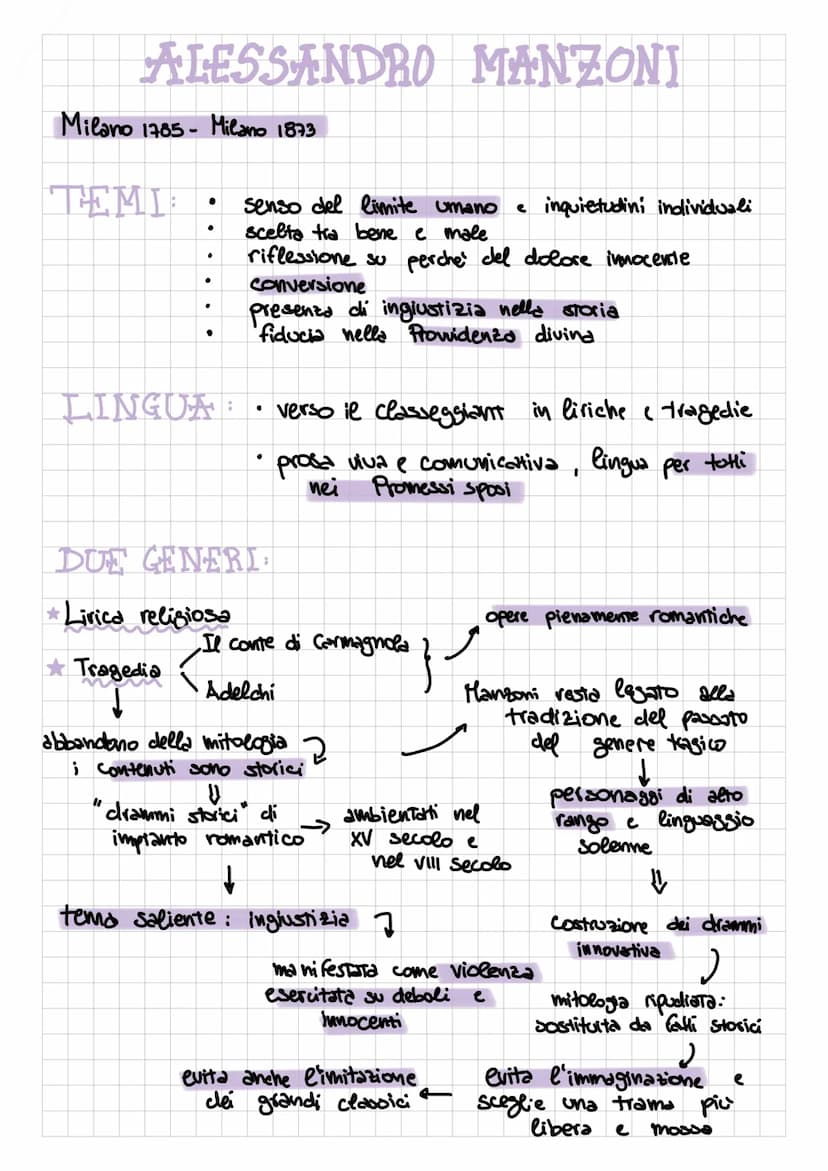 ALESSANDRO MANZONI
Milano 1785 - Milano 1873
TEMI:
• senso del limite umano e inquietudini individuali
• scelta tra bene e male
• riflessione su perchè del dolore innocente
• conversione
• presenza di ingiustizia nella storia
• fiducia nella Provvidenza divina
LINGUA:
• verso il classeggiant in liriche e tragedie
• prosa viva e comunicativa, lingua per tutti
nei Promessi sposi
DUE GENERI:
★ Lirica religiosa
★ Tragedia
Il conte di Carmagnola
Adelchi
opere pienamente romantiche
abbandono della mitologia
i contenuti sono storici
"drammi storici" di
impianto romantico
→ ambientati nel
XV secolo e
nel VIII secolo
tema saliente: ingiustizia
manifestata come violenza
esercitata su deboli e
innocenti
Manzoni resta legato alla
tradizione del passato
del genere tragico
personaggi di alto
rango e linguaggio
solenne
costruzione dei drammi
innovativa
mitologia ripudiata:
sostituita da fatti storici
evita l'immaginazione e
sceglie una trama più
libera e mossa
evita anche l'imitazione
dei grandi classici